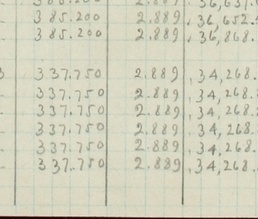 385.200 2.889 36,651.
385.200 2.889 ,36,652.
385.200 2.889 ,36,868.
337.750 2.889 ,34,268.
337.750 2.889 ,34,268.
337.750 2.889 ,34,268.
337.750 2.889 ,34,268.
337.750 2.889 ,34,268.
337.750 2.889 ,34,268.